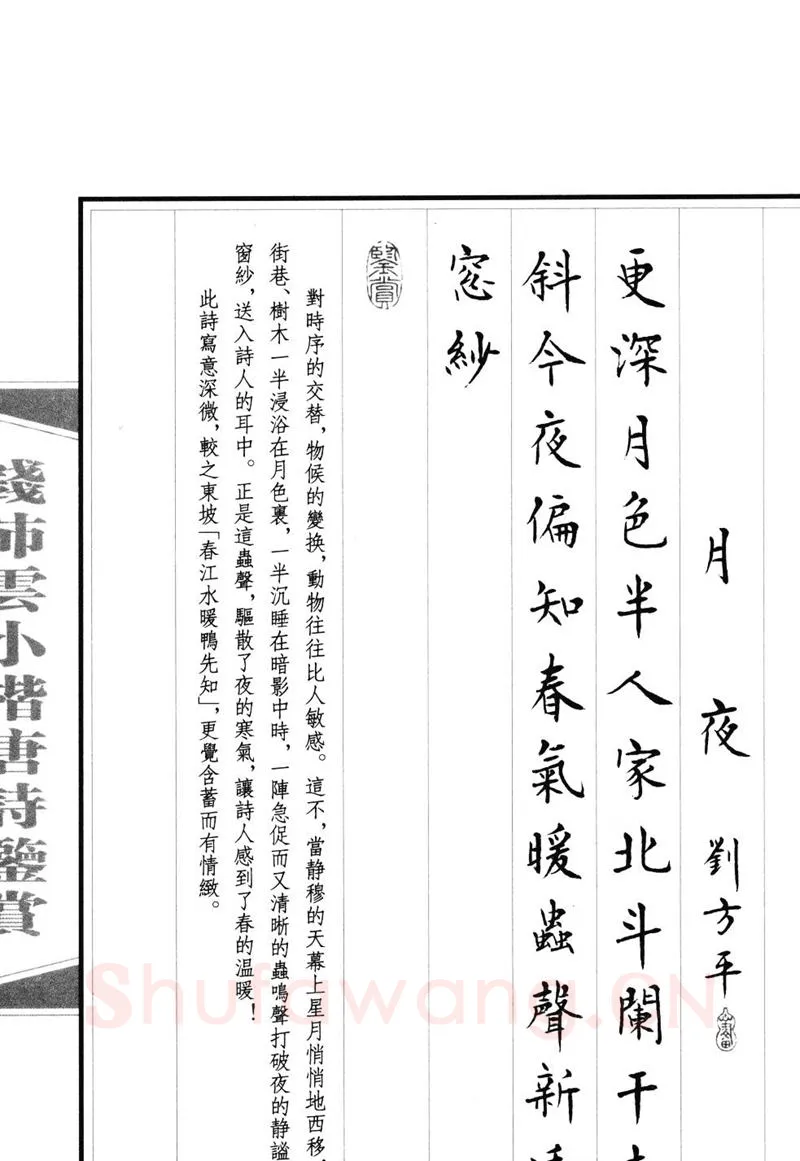 月夜 劉方平
更深月色半人家北斗闌干
斜今夜偏知春氣暖蟲聲新
窓紗
鑒賞
對時序的交替，物候的變换，動物往往比人敏感。這不，當静穆的天幕上星月悄悄地西移，
街巷、樹木一半浸浴在月色裏，一半沉睡在暗影中時，一陣急促而又清晰的蟲鳴聲打破夜的静謐
窗紗，送入詩人的耳中。正是這蟲聲，驅散了夜的寒氣，讓詩人感到了春的温暖！
此詩寫意深微，較之東坡「春江水暖鴨先知」，更覺含蓄而有情緻。
錢沛雲小楷唐詩鑒賞
Shufawang.CN